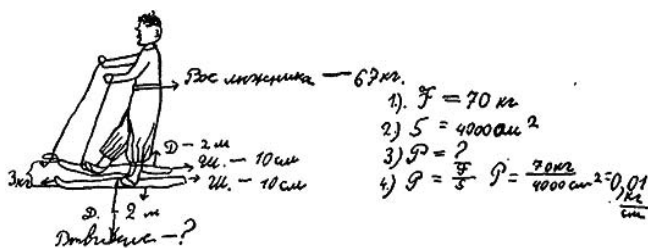 Вес лыжника — 67 кг.
Д — 2 м
Ш. — 10 см
3 кг
Ш. — 10 см
Д. — 2 м
Давление — ?
1). F = 70 кг
2) S = 4000 см²
3) P = ?
4.) P = F/S P = 70 кг/4000 см² = 0,01 кг/см